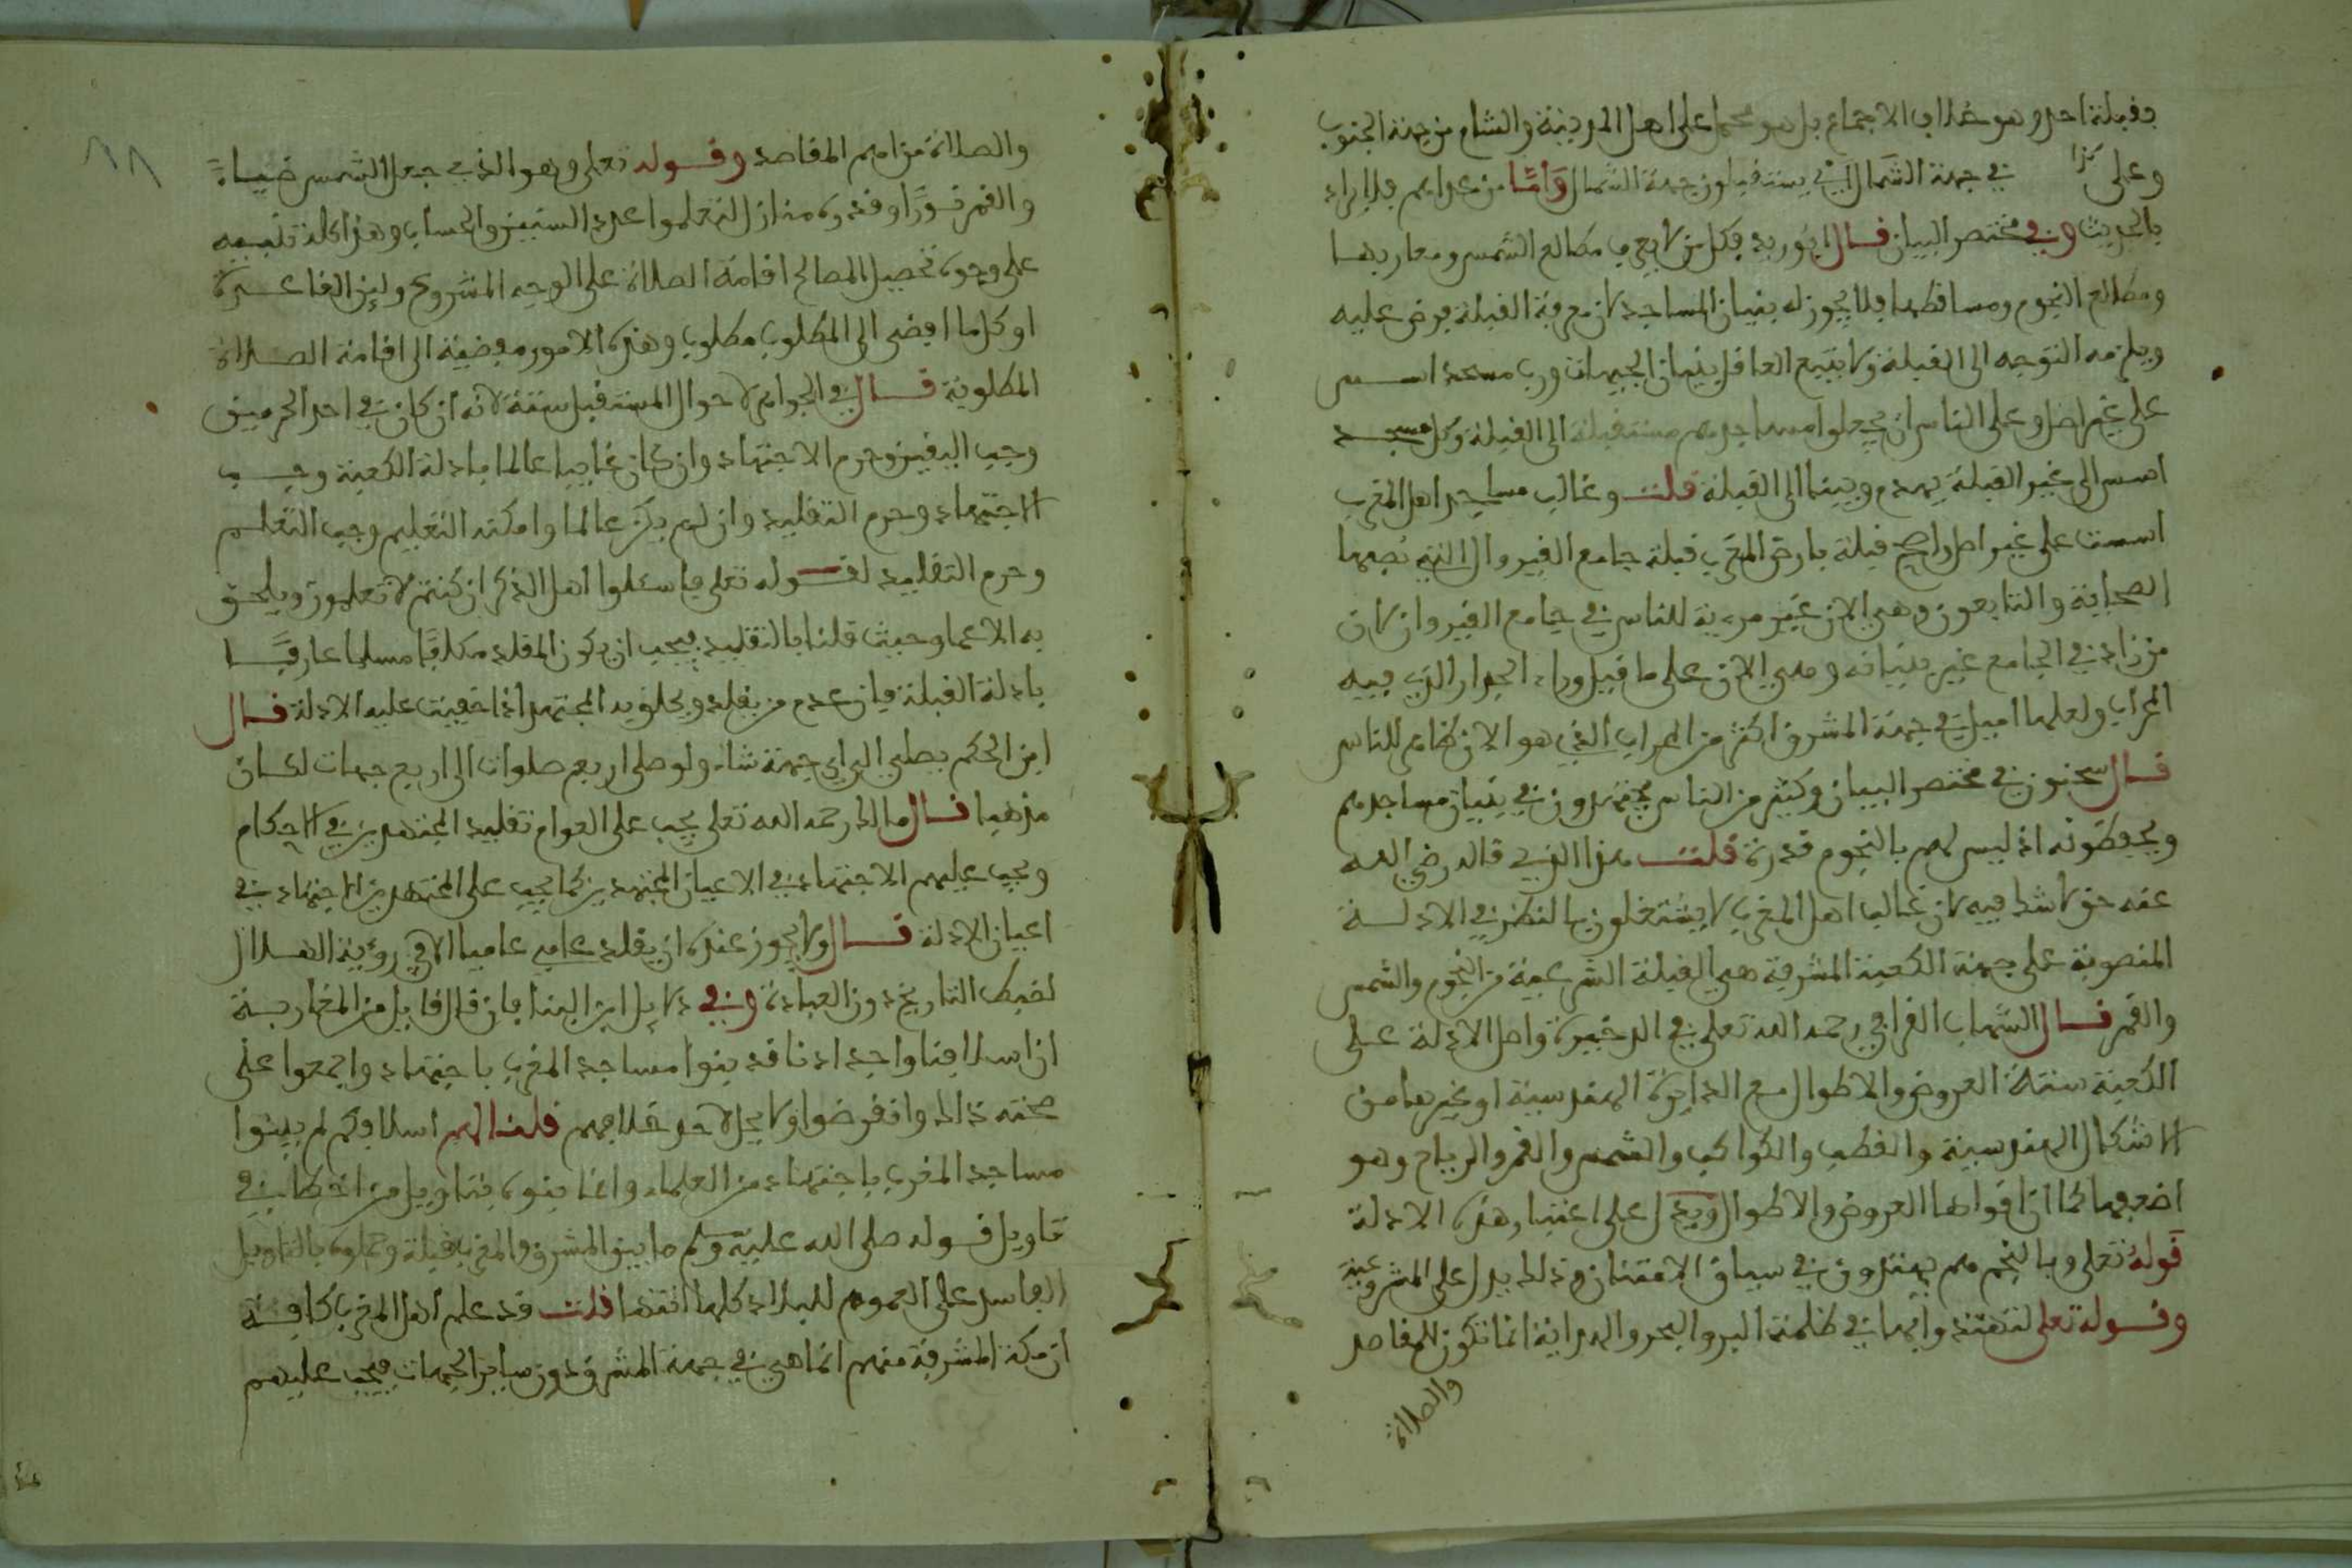 بقبلة احد وهو خلاف الاجماع بل هو محمل على اهل المدينة والشام من جهة الجنوب
وعلى كذا في جهة الشمال يستقبلون جهة الشمال وَامّا من عداهم فلا يراد
بالحديث وفي مختصر البيان قال ابوريد فكل من لا يعرف مطالع الشمس ومغاربها
ومطالع النجوم ومساقطها فلا يجوز له بنيان المساجد لان معرفة القبلة فرض عليه
ويلزمه التوجه الى القبلة ولا يتبع العاقل بنيان الجهات ورب مسجد اسس
على غير اصل وعلى الناس ان يجعلوا مساجدهم مستقبلة الى القبلة وكل مسجد
اسس الى غير القبلة يهدم ويبنا الى القبلة قلت وغالب مساجد اهل المغرب
اسست على غير اصل واصح قبلة بارض المغرب قبلة جامع القيروان التي نصبها
الصحابة والتابعون وهي الان غير مرءية للناس في جامع القيروان لان
من زاد في الجامع غير بنيانه وهي الان على ما قيل وراء الجدار الذي فيه
المحراب ولعلها اميل في جهة المشرق اكثر من المحراب الذي هو الان ظاهر للناس
قال سحنون في مختصر البيان وكثير من الناس يجتهدون في بنيان مساجدهم
ويحفظونه اذ ليس لهم بالنجوم قدرة قلت هذا الذي قاله رضي الله
عنه حق لا شك فيه لان غالب اهل المغرب لا يشتغلون بالنظر في الادلة
المنصوبة على جهة الكعبة المشرفة هي القبلة الشرعية من النجوم والشمس
والقمر قال الشهاب القرافي رحمه الله تعلى في الدخيرة واصل الادلة على
الكعبة ستة العروض والاطوال مع الدايرة الهندسية او غيرها من
الاشكال الهندسية والقطب والكواكب والشمس والقمر والرياح وهو
اضعفها كما ان اقواها العروض والاطوال ويدل على اعتبار هذه الادلة
قوله تعلى وبالنجم هم يهتدون في سياق الامتنان وذلك يدل على المشروعية
وقوله تعلى لتهتدوا بها في ظلمة البر والبحر والهداية انما تكون للمقاصد
والصلاة
والصلاة من اهم المقاصد وقوله تعلى وهو الذي جعل الشمس ضياءً
والقمر نورًا وقدره منازل لتعلموا عدد السنين والحساب وهذا كله تنبيه
على وجوه تحصيل المصالح اقامة الصلاة على الوجه المشروع ولين القاعدة
او كل ما افضى الى المطلوب مطلوب وهذه الامور مفضية الى اقامة الصلاة
المطلوبة قال في الجواهر لاحوال المستقبل ستة لانه ان كان في احد الحرمين
وجب اليقين وحرم الاجتهاد وان كان غايبا عالما بادلة الكعبة وجب
الاجتهاد وحرم التقليد وان لم يكن عالما وامكنه التعليم وجب التعلم
وحرم التقليد لقوله تعلى فاسئلوا اهل الذكر ان كنتم لا تعلمون ويلحق
به الاعما وحيث قلنا بالتقليد فيجب ان يكون المقلد مكلفًا مسلما عارفًا
بادلة القبلة فان عدم من يقلده يلحق به المجتهد اذا خفيت عليه الادلة قال
ابن الحكم يصلي الى اي جهة شاء ولو صلى اربع صلوات الى اربع جهات لكان
مذهبا قال مالك رحمه الله تعلى يجب على العوام تقليد المجتهدين في الاحكام
ويجب عليهم الاجتهاد في الاعيان المجتهدين كما يجب على المجتهدين الاجتهاد في
اعيان الادلة قال ولا يجوز عنده ان يقلد عامي عاميا الا في روية الهلال
لضبط التاريخ دون العبادة وفي دلايل ابن البنا فان قال قايل من المغاربة
ان اسلافنا واجدادنا قد بنوا مساجد المغرب باجتهاد واجمعوا على
صحته ذالك وانقرضوا ولا يحل لاحد خلافهم قلنا لهم اسلافكم لم يبنوا
مساجد المغرب باجتهاد من العلماء وانما بنوه بتاويل من اخطا في
تاويل قوله صلى الله عليه وسلم ما بين المشرق والمغرب قبلة وحملوه بالتاويل
الفاسد على العموم للبلاد كلها انتهى قلت قد علم اهل المغرب كافة
ان مكة المشرفة منهم انما هي في جهة المشرق دون ساير الجهات فيجب عليهم